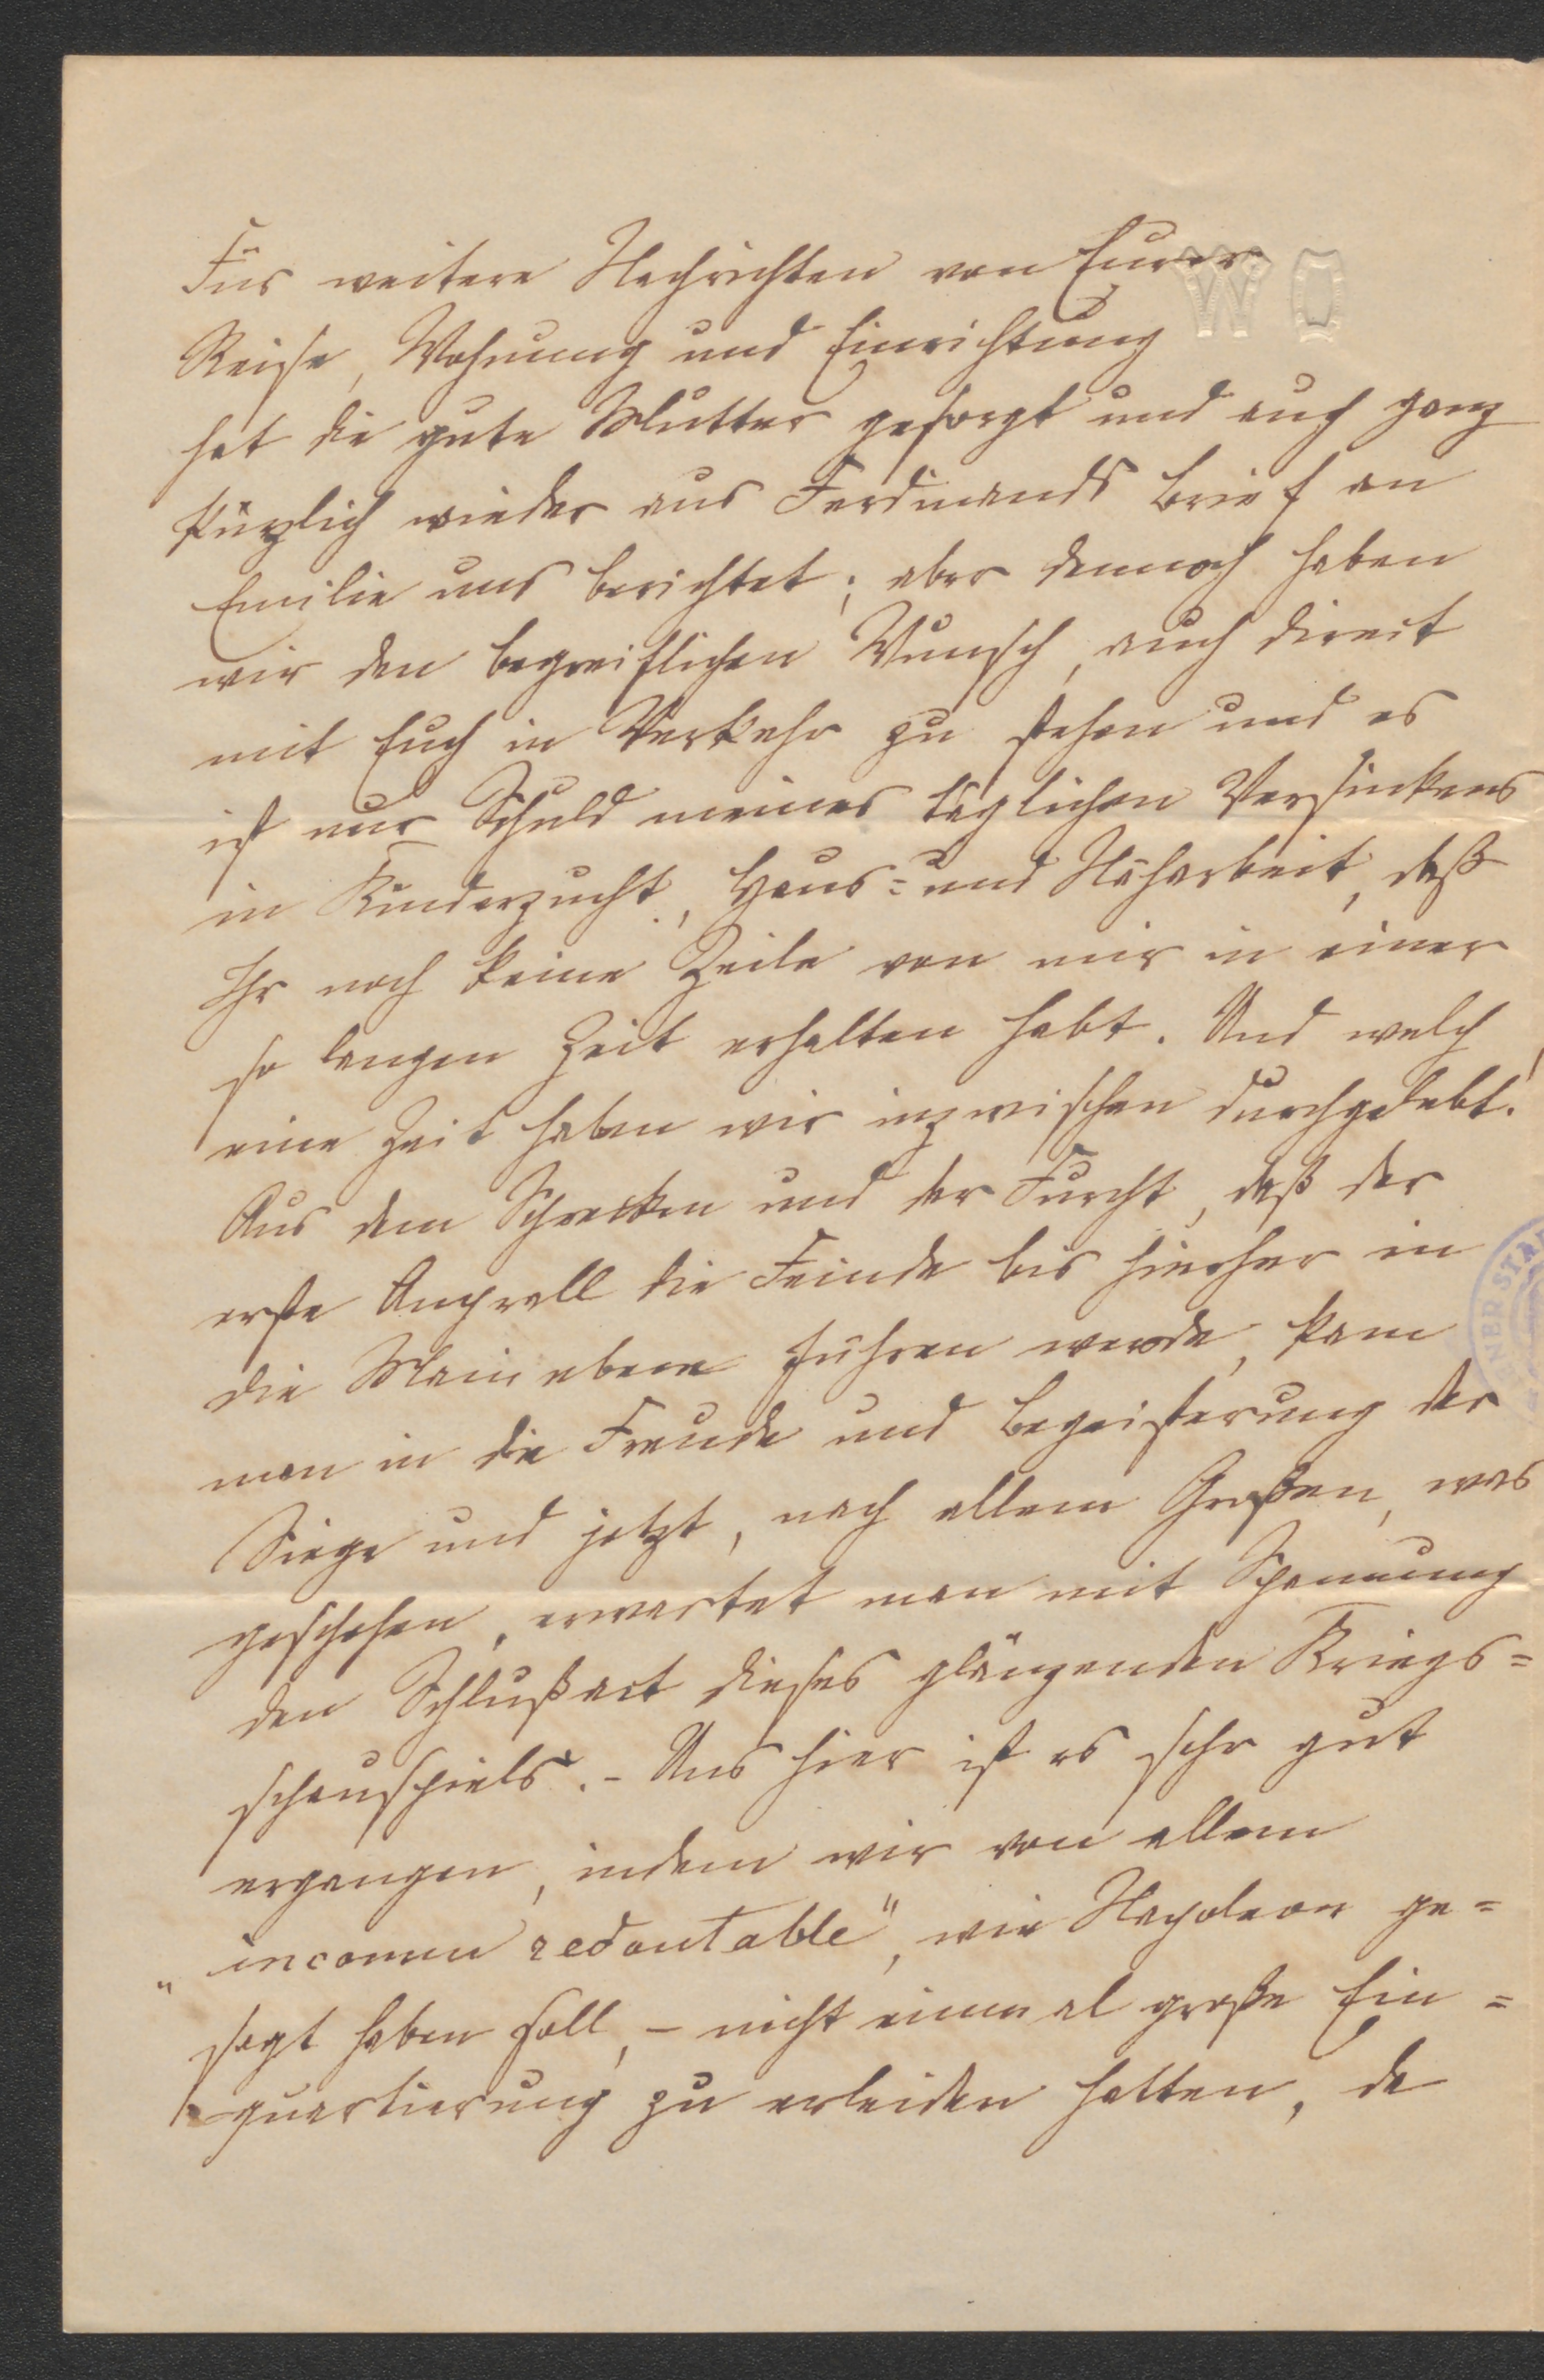 Für weitere Nachrichten von Eurer
WO
Reise, Wohnung und Einrichtung
hat die gute Mutter gesorgt und auch ganz
kürzlich wieder aus Ferdinands Brief an
Emilie uns berichtet; aber dennoch haben
wir den begreiflichen Wunsch, auch direct
mit Euch in Verkehr zu stehen und es
ist nur Schuld meines täglichen Versinkens
in Kinderzucht, Haus= und Näharbeit, daß
Ihr noch keine Zeile von mir in einer
so langen Zeit erhalten habt. Und welch
eine Zeit haben wir inzwischen durchgelebt!
Aus dem Schrecken und der Furcht, daß der
erste Anprall die Feinde bis hierher in
die Mainebene führen werde, kam
man in die Freude und Begeisterung der
Siege und jetzt, nach allem Großen, was
geschehen, erwartet man mit Spannung
den Schlußact dieses glänzenden Kriegs=
schauspiels. – Uns hier ist es sehr gut
ergangen, indem wir von allem
„inconnu redoutable", wie Napoleon ge=
sagt haben soll, – nicht einmal große Ein=
quartierung zu erleiden hatten, da
NER STA